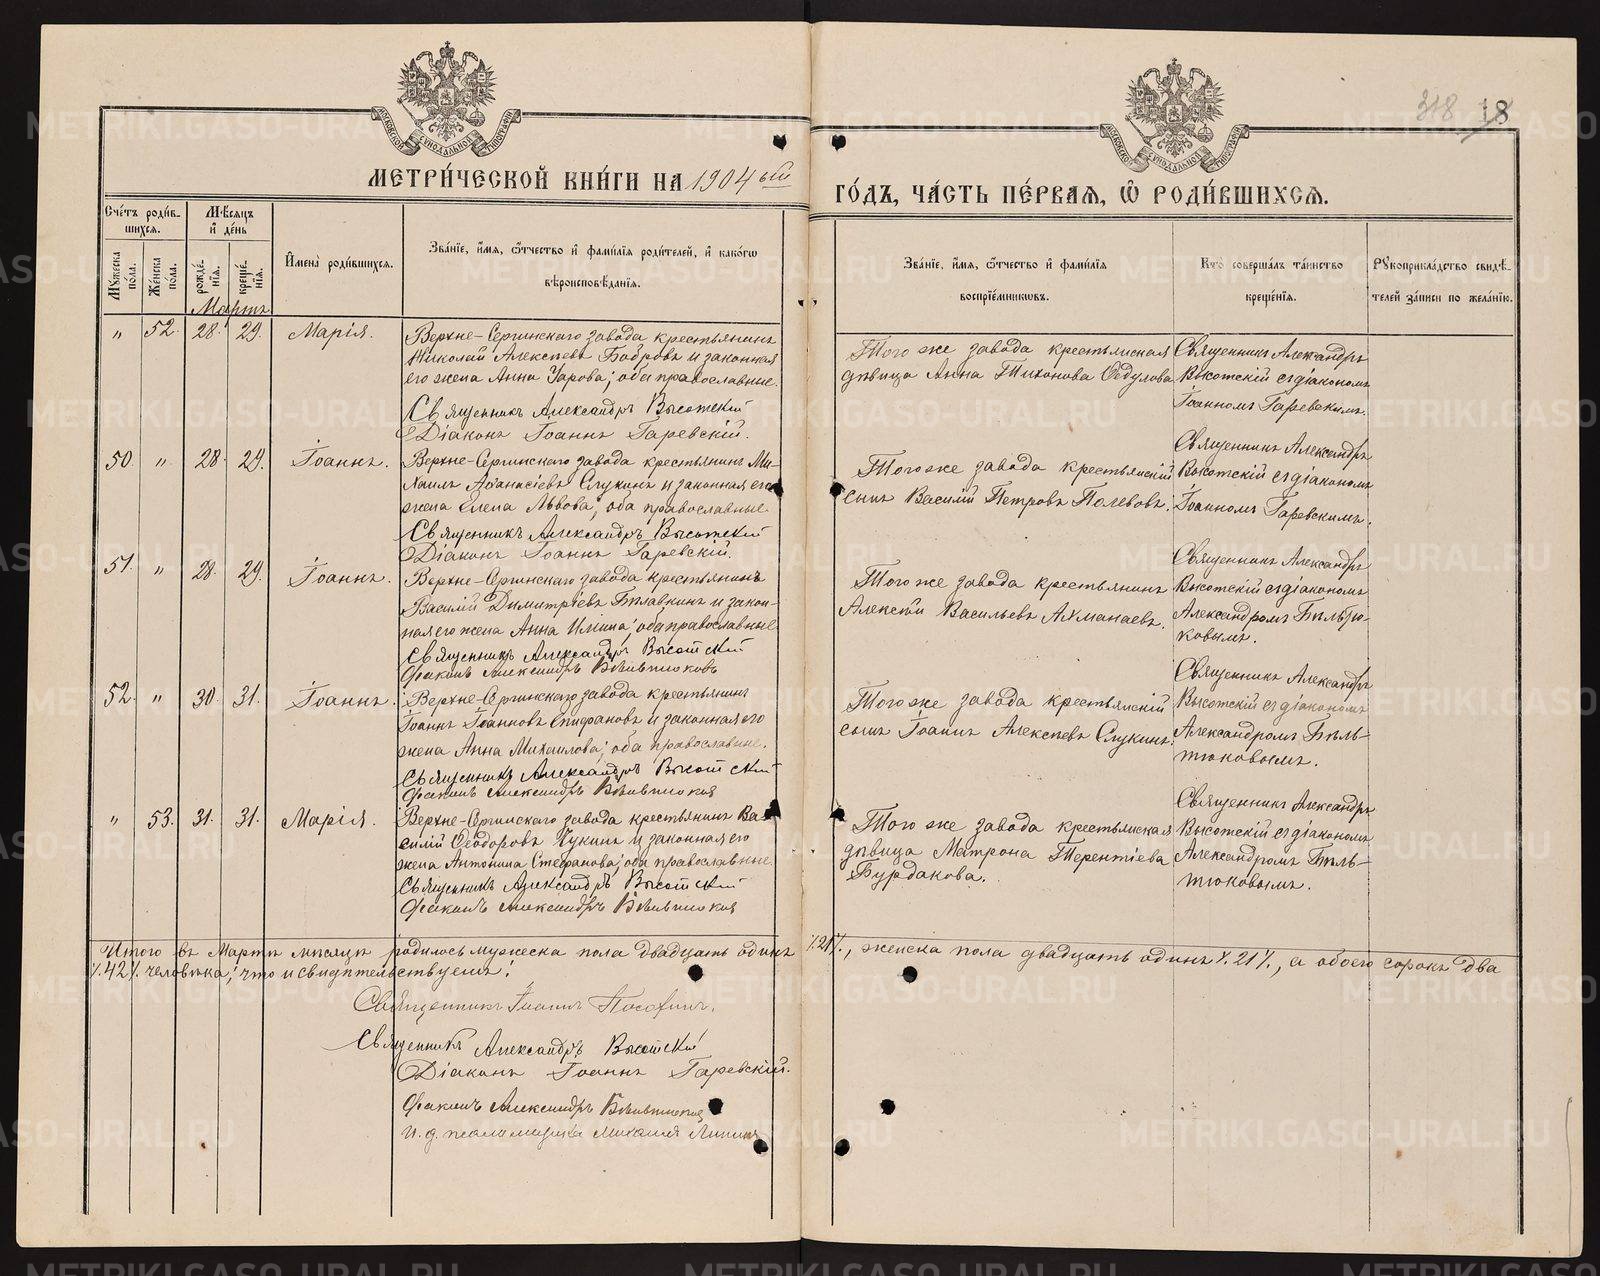 318 18
МОСКОВСКОЙ СѴНОДАЛЬНОЙ ТИПОГРАФІИ
МОСКОВСКОЙ СѴНОДАЛЬНОЙ ТИПОГРАФІИ
МЕТРИ́ЧЕСКОЙ КНИ́ГИ НА 1904ый
ГО́ДЪ, ЧА́СТЬ ПЕ́РВАѦ, Ѽ РОДИ́ВШИХСѦ.
Сче́тъ роди́в-
шихсѧ.
Мꙋжеска по́ла.
Же́нска по́ла.
Мѣ́сѧцъ и҆ де́нь
рожде́нїѧ.
креще́нїѧ.
И҆мена̀ роди́вшихсѧ.
Зва́нїе, и҆́мѧ, ѻ҆́тчество и҆ фами́лїѧ роди́телей, и҆ како́гѡ
вѣроисповѣ́данїѧ.
Зва́нїе, и҆́мѧ, ѻ҆́тчество и҆ фами́лїѧ
воспрїе́мникѡвъ.
Кто̀ соверша́лъ та́инство
креще́нїѧ.
Рꙋкоприкла́дство свидѣ́-
телей за́писи по жела́нїю.
Мартъ
" 52. 28. 29. Марія.
Верхне-Сергинскаго завода крестьянинъ
Николай Алексѣевъ Бобровъ и законная
его жена Анна Уарова; оба православные.
Священникъ Александръ Высотскій
Діаконъ Іоаннъ Гаревскій.
Того же завода крестьянская
дѣвица Анна Тихонова Ѳедулова
Священникъ Александръ
Высотскій съ діакономъ
Іоанномъ Гаревскимъ.
50. " 28. 29. Іоаннъ.
Верхне-Сергинскаго завода крестьянинъ Ми-
хаилъ Аѳанасіевъ Слукинъ и законная его
жена Елена Львова; оба православные.
Священникъ Александръ Высотскій
Діаконъ Іоаннъ Гаревскій.
Того же завода крестьянскій
сынъ Василій Петровъ
Священникъ Александръ
Высотскій съ діакономъ
Іоанномъ Гаревскимъ.
51. " 28. 29. Іоаннъ.
Верхне-Сергинскаго завода крестьянинъ
Василій Димитріевъ и закон-
ная его жена Анна; оба православные.
Священникъ Александръ Высотскій
Діаконъ Александръ Бѣльтюковъ
Того же завода крестьянинъ
Алексѣй Васильевъ Ахманаевъ.
Священникъ Александръ
Высотскій съ діакономъ
Александромъ Бѣльтю-
ковымъ.
52. " 30. 31. Іоаннъ.
Верхне-Сергинскаго завода крестьянинъ
Іоаннъ Іоанновъ Епифановъ и законная его
жена Анна Михаилова; оба православные.
Священникъ Александръ Высотскій
Діаконъ Александръ Бѣльтюковъ
Того же завода крестьянскій
сынъ Іоаннъ Алексѣевъ Слукинъ.
Священникъ Александръ
Высотскій съ діакономъ
Александромъ Бѣль-
тюковымъ.
" 53. 31. 31. Марія.
Верхне-Сергинскаго завода крестьянинъ Ва-
силій Ѳеодоровъ и законная его
жена Антонина Стефанова; оба православные.
Священникъ Александръ Высотскій
Діаконъ Александръ Бѣльтюковъ
Того же завода крестьянская
дѣвица Матрона Терентіева
Бурдакова.
Священникъ Александръ
Высотскій съ діакономъ
Александромъ Бѣль-
тюковымъ.
Итого въ Мартѣ мѣсяцѣ родилось мужеска пола двадцать одинъ ٪21٪, женска пола двадцать одинъ ٪21٪, а обоего сорокъ два
٪42٪ человѣка; что и свидѣтельствуемъ:
Священникъ Іоаннъ
Священникъ Александръ Высотскій
Діаконъ Іоаннъ Гаревскій.
Діаконъ Александръ Бѣльтюковъ
и. д. псаломщика Михаилъ
METRIKI.GASO-URAL.RU